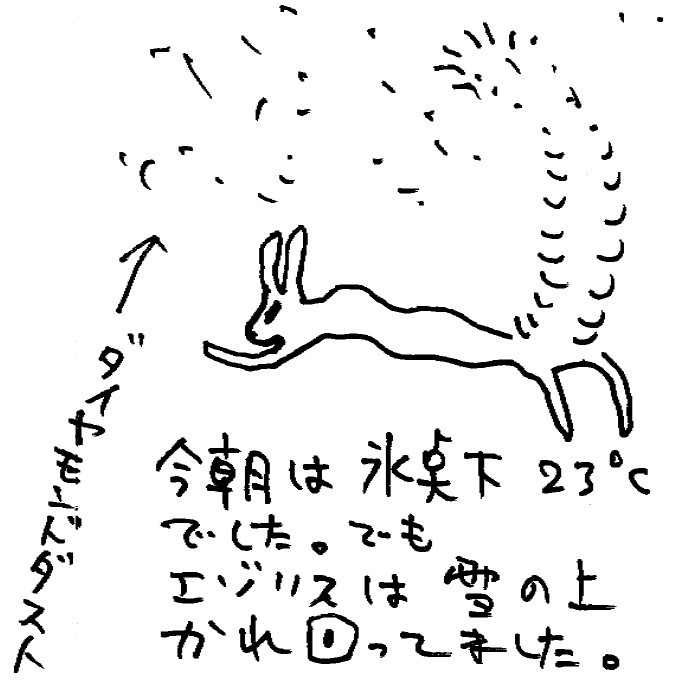 ダイヤモンドダスト
今朝は 氷点下 23℃
でした。でも
エゾリスは 雪の上
かれ回ってました。